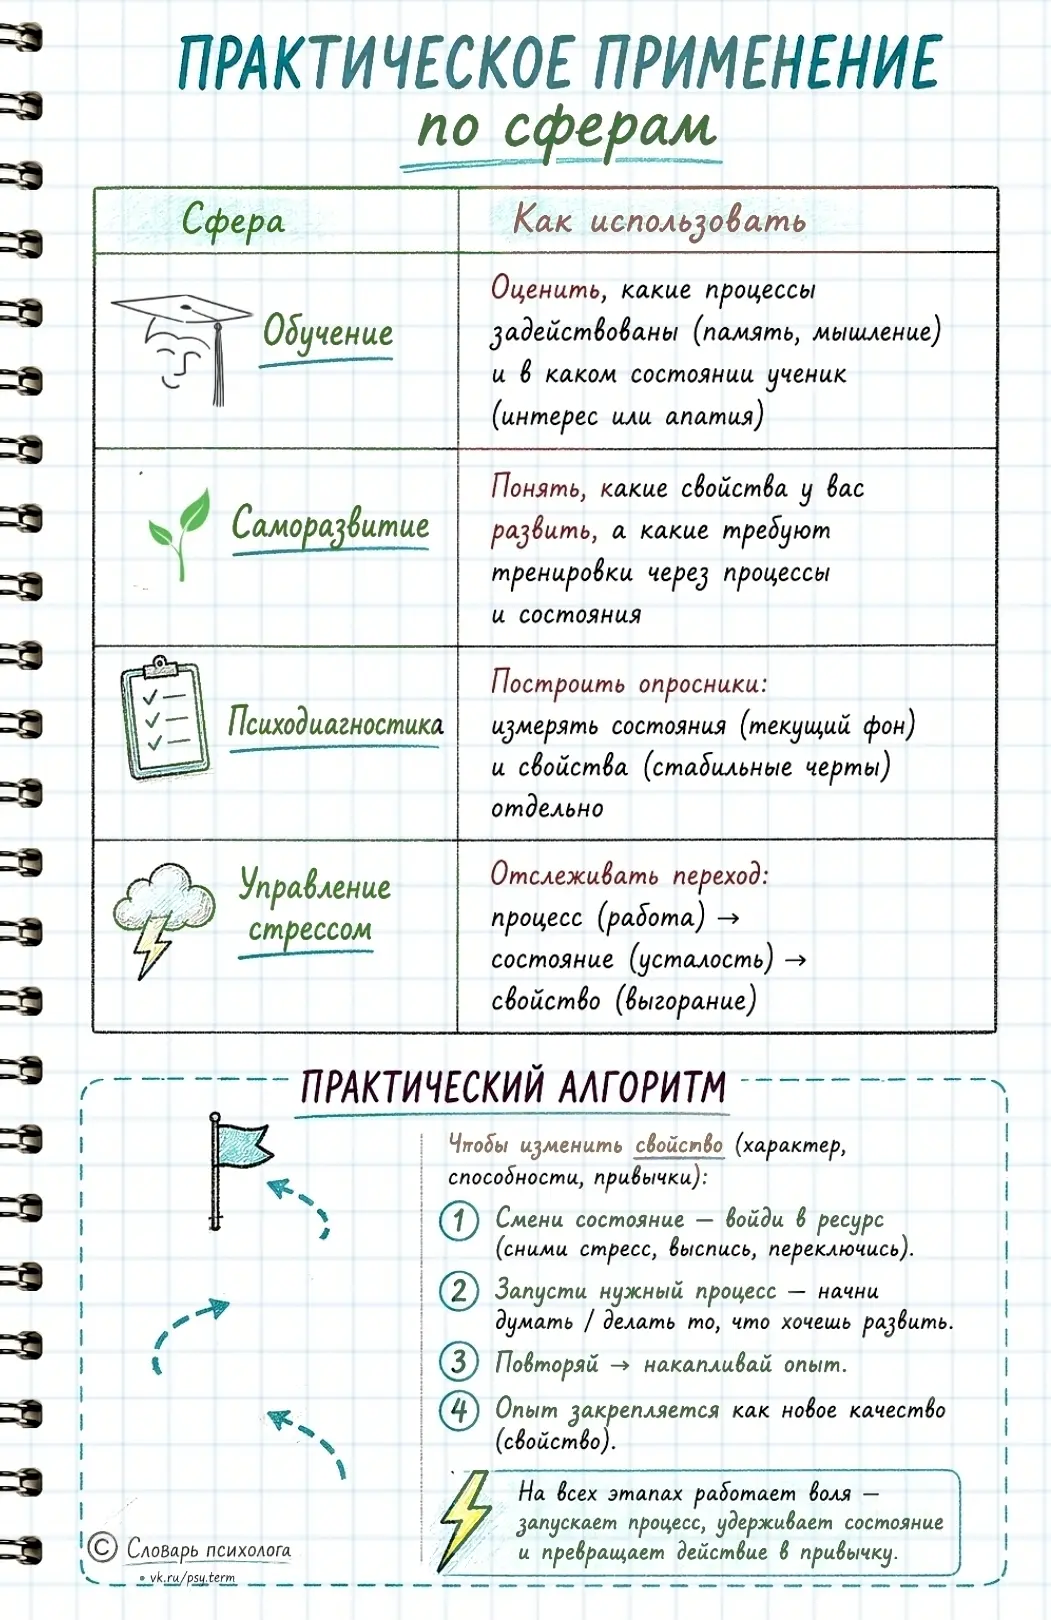 ПРАКТИЧЕСКОЕ ПРИМЕНЕНИЕ
по сферам
Сфера
Как использовать
Обучение
Оценить, какие процессы
задействованы (память, мышление)
и в каком состоянии ученик
(интерес или апатия)
Саморазвитие
Понять, какие свойства у вас
развить, а какие требуют
тренировки через процессы
и состояния
Психодиагностика
Построить опросники:
измерять состояния (текущий фон)
и свойства (стабильные черты)
отдельно
Управление
стрессом
Отслеживать переход:
процесс (работа) →
состояние (усталость) →
свойство (выгорание)
ПРАКТИЧЕСКИЙ АЛГОРИТМ
Чтобы изменить свойство (характер,
способности, привычки):
1 Смени состояние — войди в ресурс
(сними стресс, выспись, переключись).
2 Запусти нужный процесс — начни
думать / делать то, что хочешь развить.
3 Повторяй → накапливай опыт.
4 Опыт закрепляется как новое качество
(свойство).
На всех этапах работает воля —
запускает процесс, удерживает состояние
и превращает действие в привычку.
© Словарь психолога
• vk.ru/psy.term